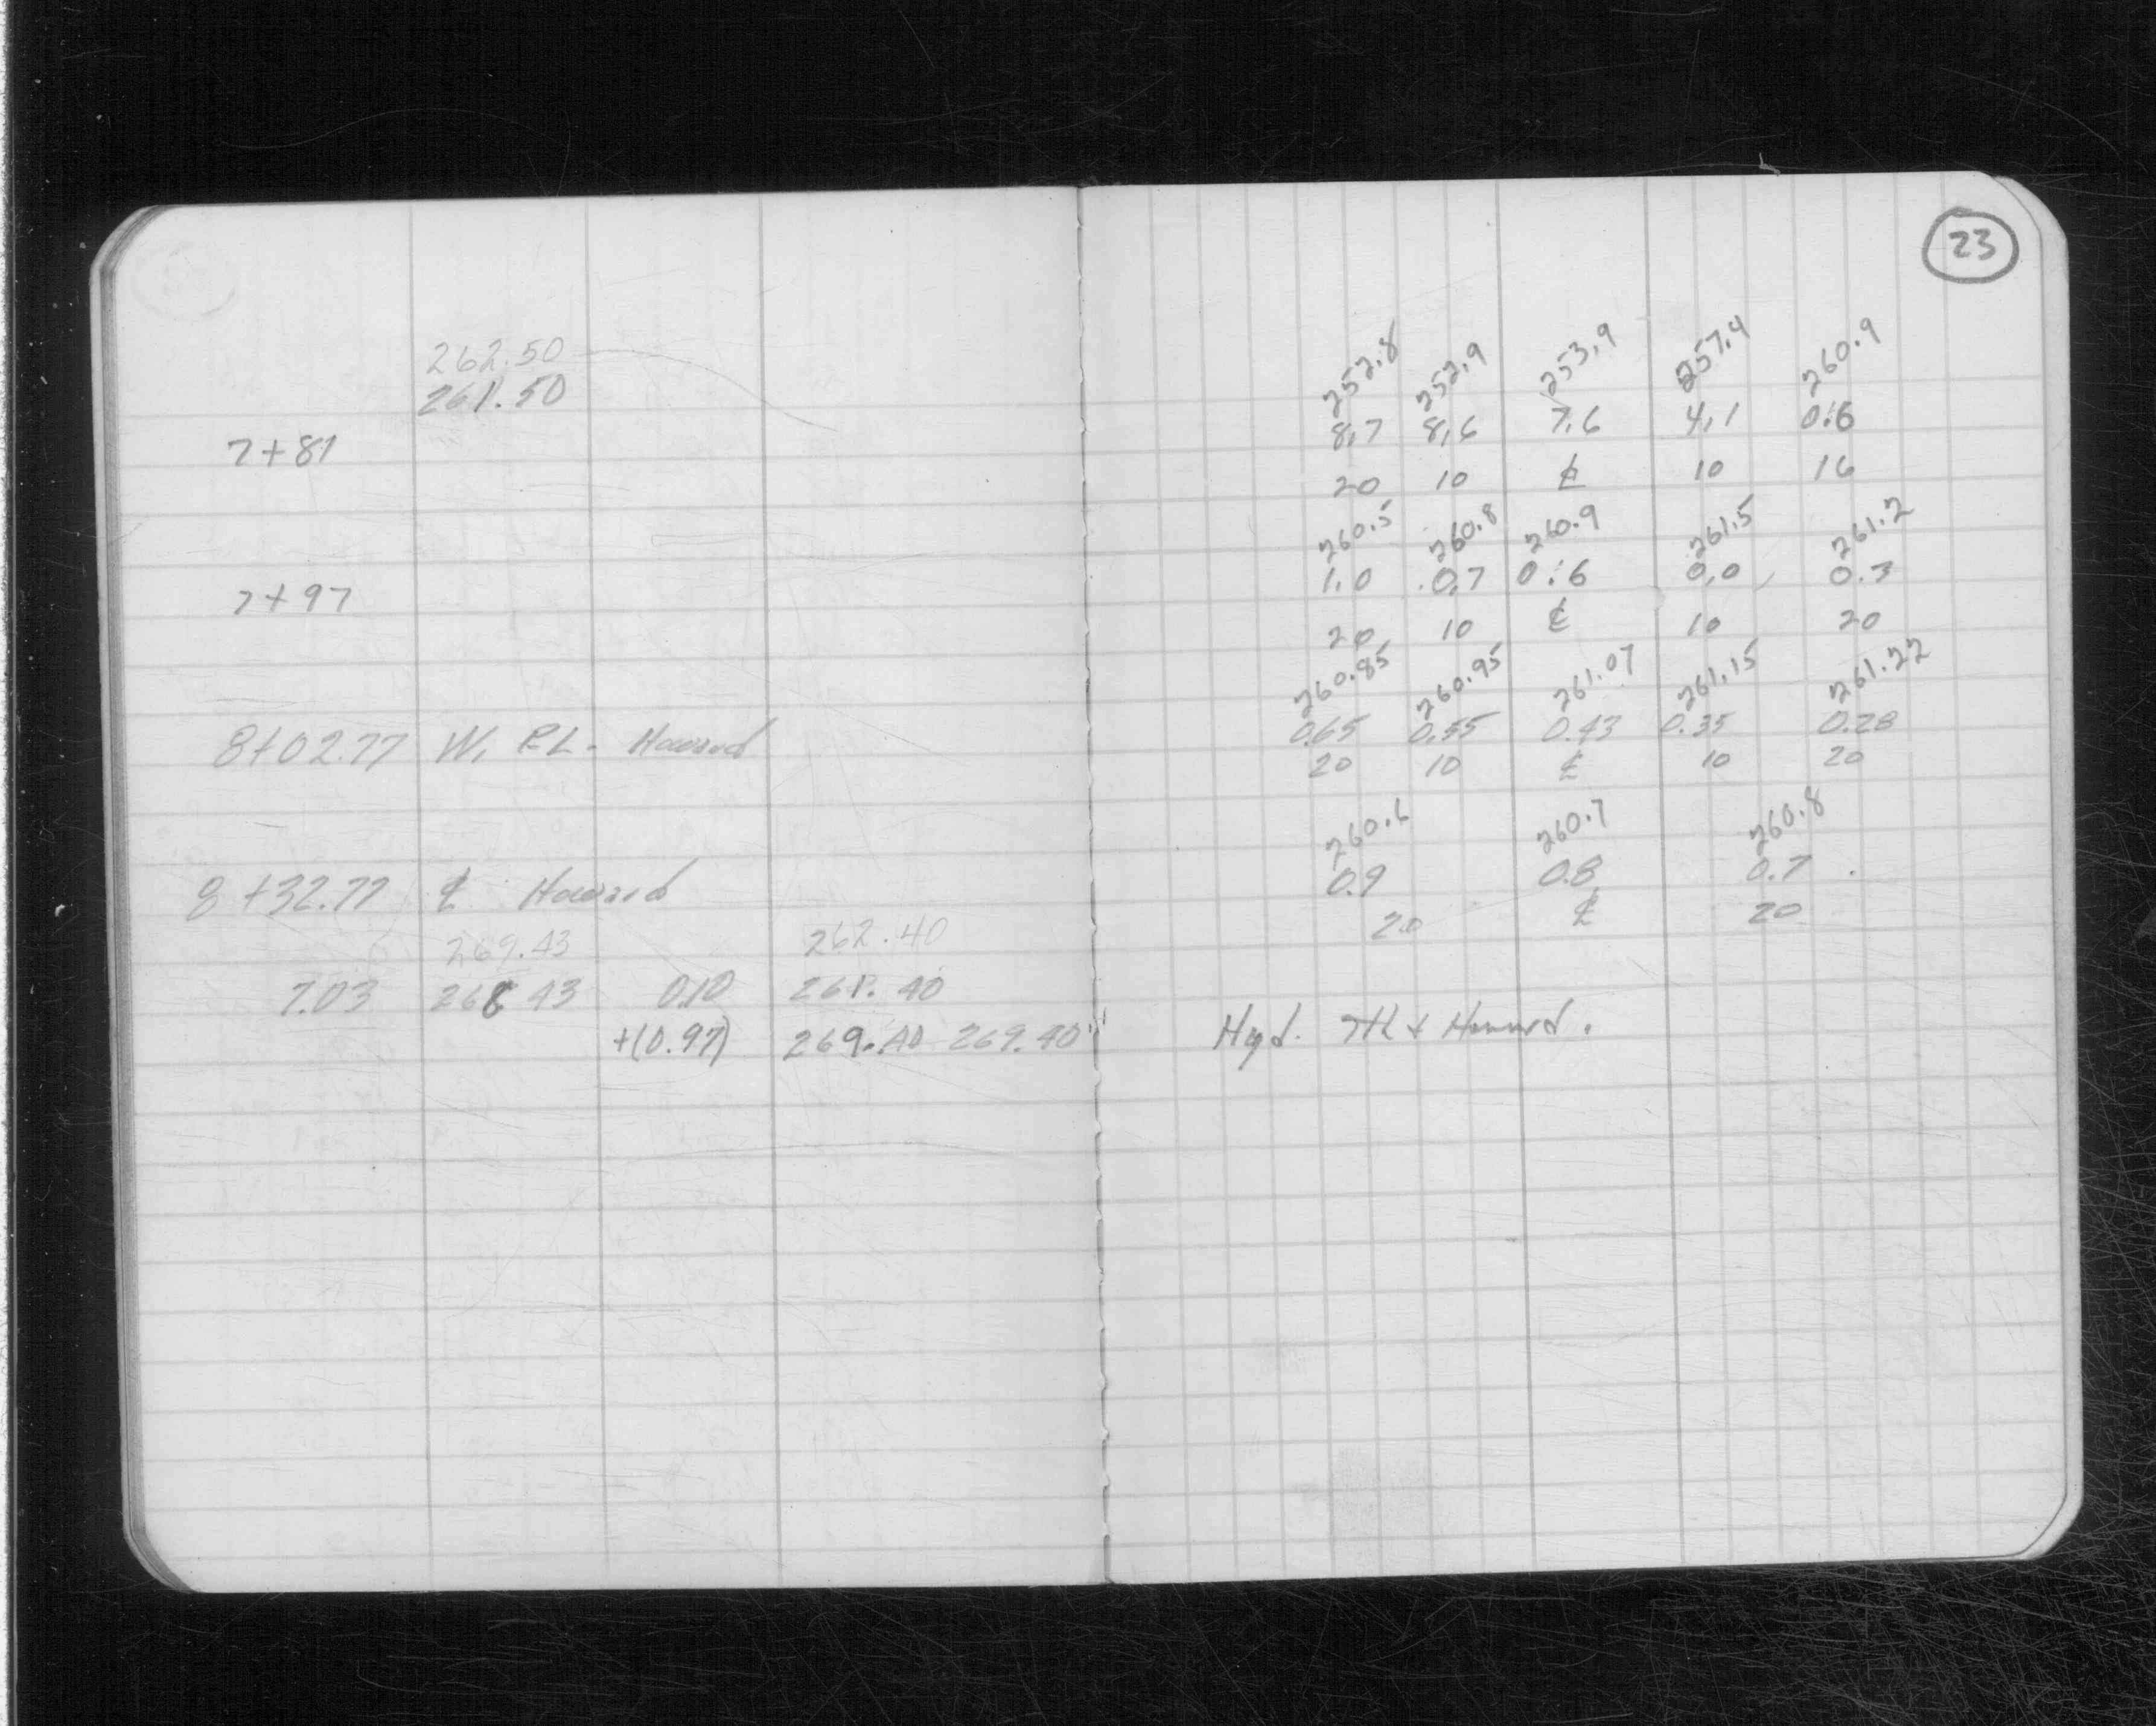 23
262.50
261.50
252.8 252.9 253.9 257.4 260.9
8.7 8.6 7.6 4.1 0.6
7+81
20 10 ℄ 10 16
260.5 260.8 260.9 261.5 261.2
1.0 0.7 0.6 0.0 0.3
7+97
20 10 ℄ 10 20
260.85 260.95 261.07 261.15 261.22
8+02.77 W. P.L. Howard
0.65 0.55 0.43 0.35 0.28
20 10 ℄ 10 20
260.6 260.7 260.8
8+32.77 ℄ Howard
0.9 0.8 0.7
20 ℄ 20
269.43 262.40
7.03 268.43 0.10 261.40
+(0.97) 269.40 269.40
Hyd. 7th & Howard.